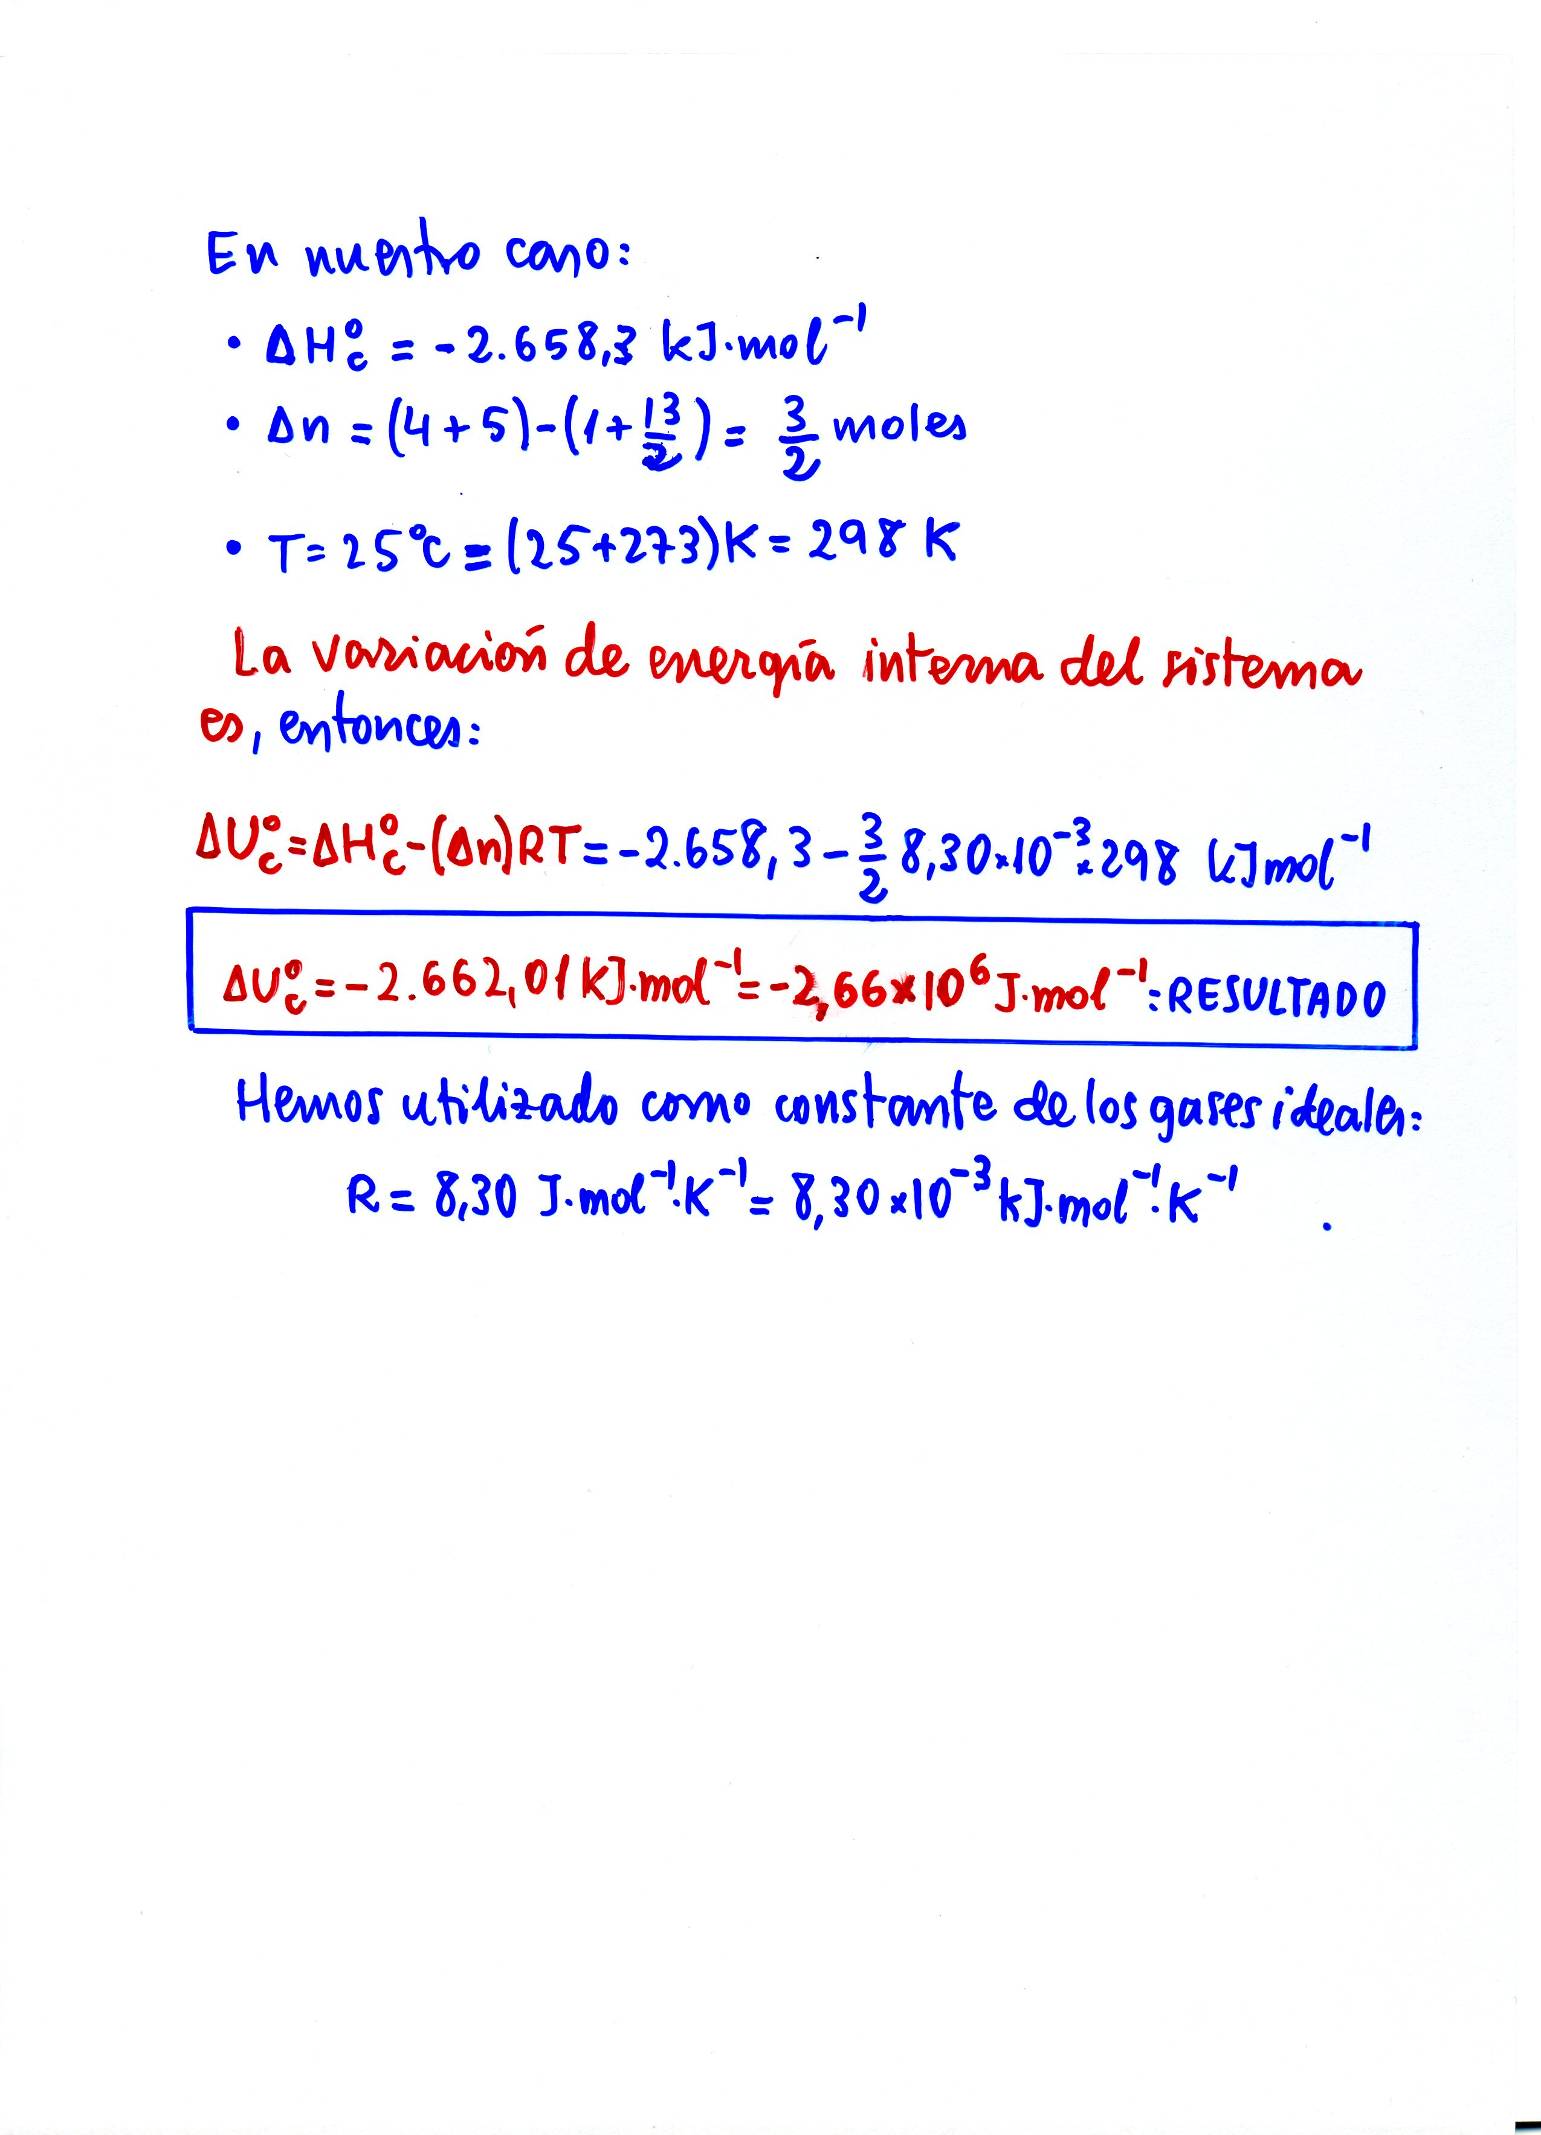 En nuestro caso:
• ΔH°c = -2.658,3 kJ·mol⁻¹
• Δn = (4+5)-(1+13/2) = 3/2 moles
• T = 25°C = (25+273)K = 298 K
La variación de energía interna del sistema
es, entonces:
ΔU°c = ΔH°c - (Δn)RT = -2.658,3 - 3/2 8,30×10⁻³×298 kJ mol⁻¹
ΔU°c = -2.662,01 kJ·mol⁻¹ = -2,66×10⁶ J·mol⁻¹: RESULTADO
Hemos utilizado como constante de los gases ideales:
R = 8,30 J·mol⁻¹·K⁻¹ = 8,30×10⁻³ kJ·mol⁻¹·K⁻¹.